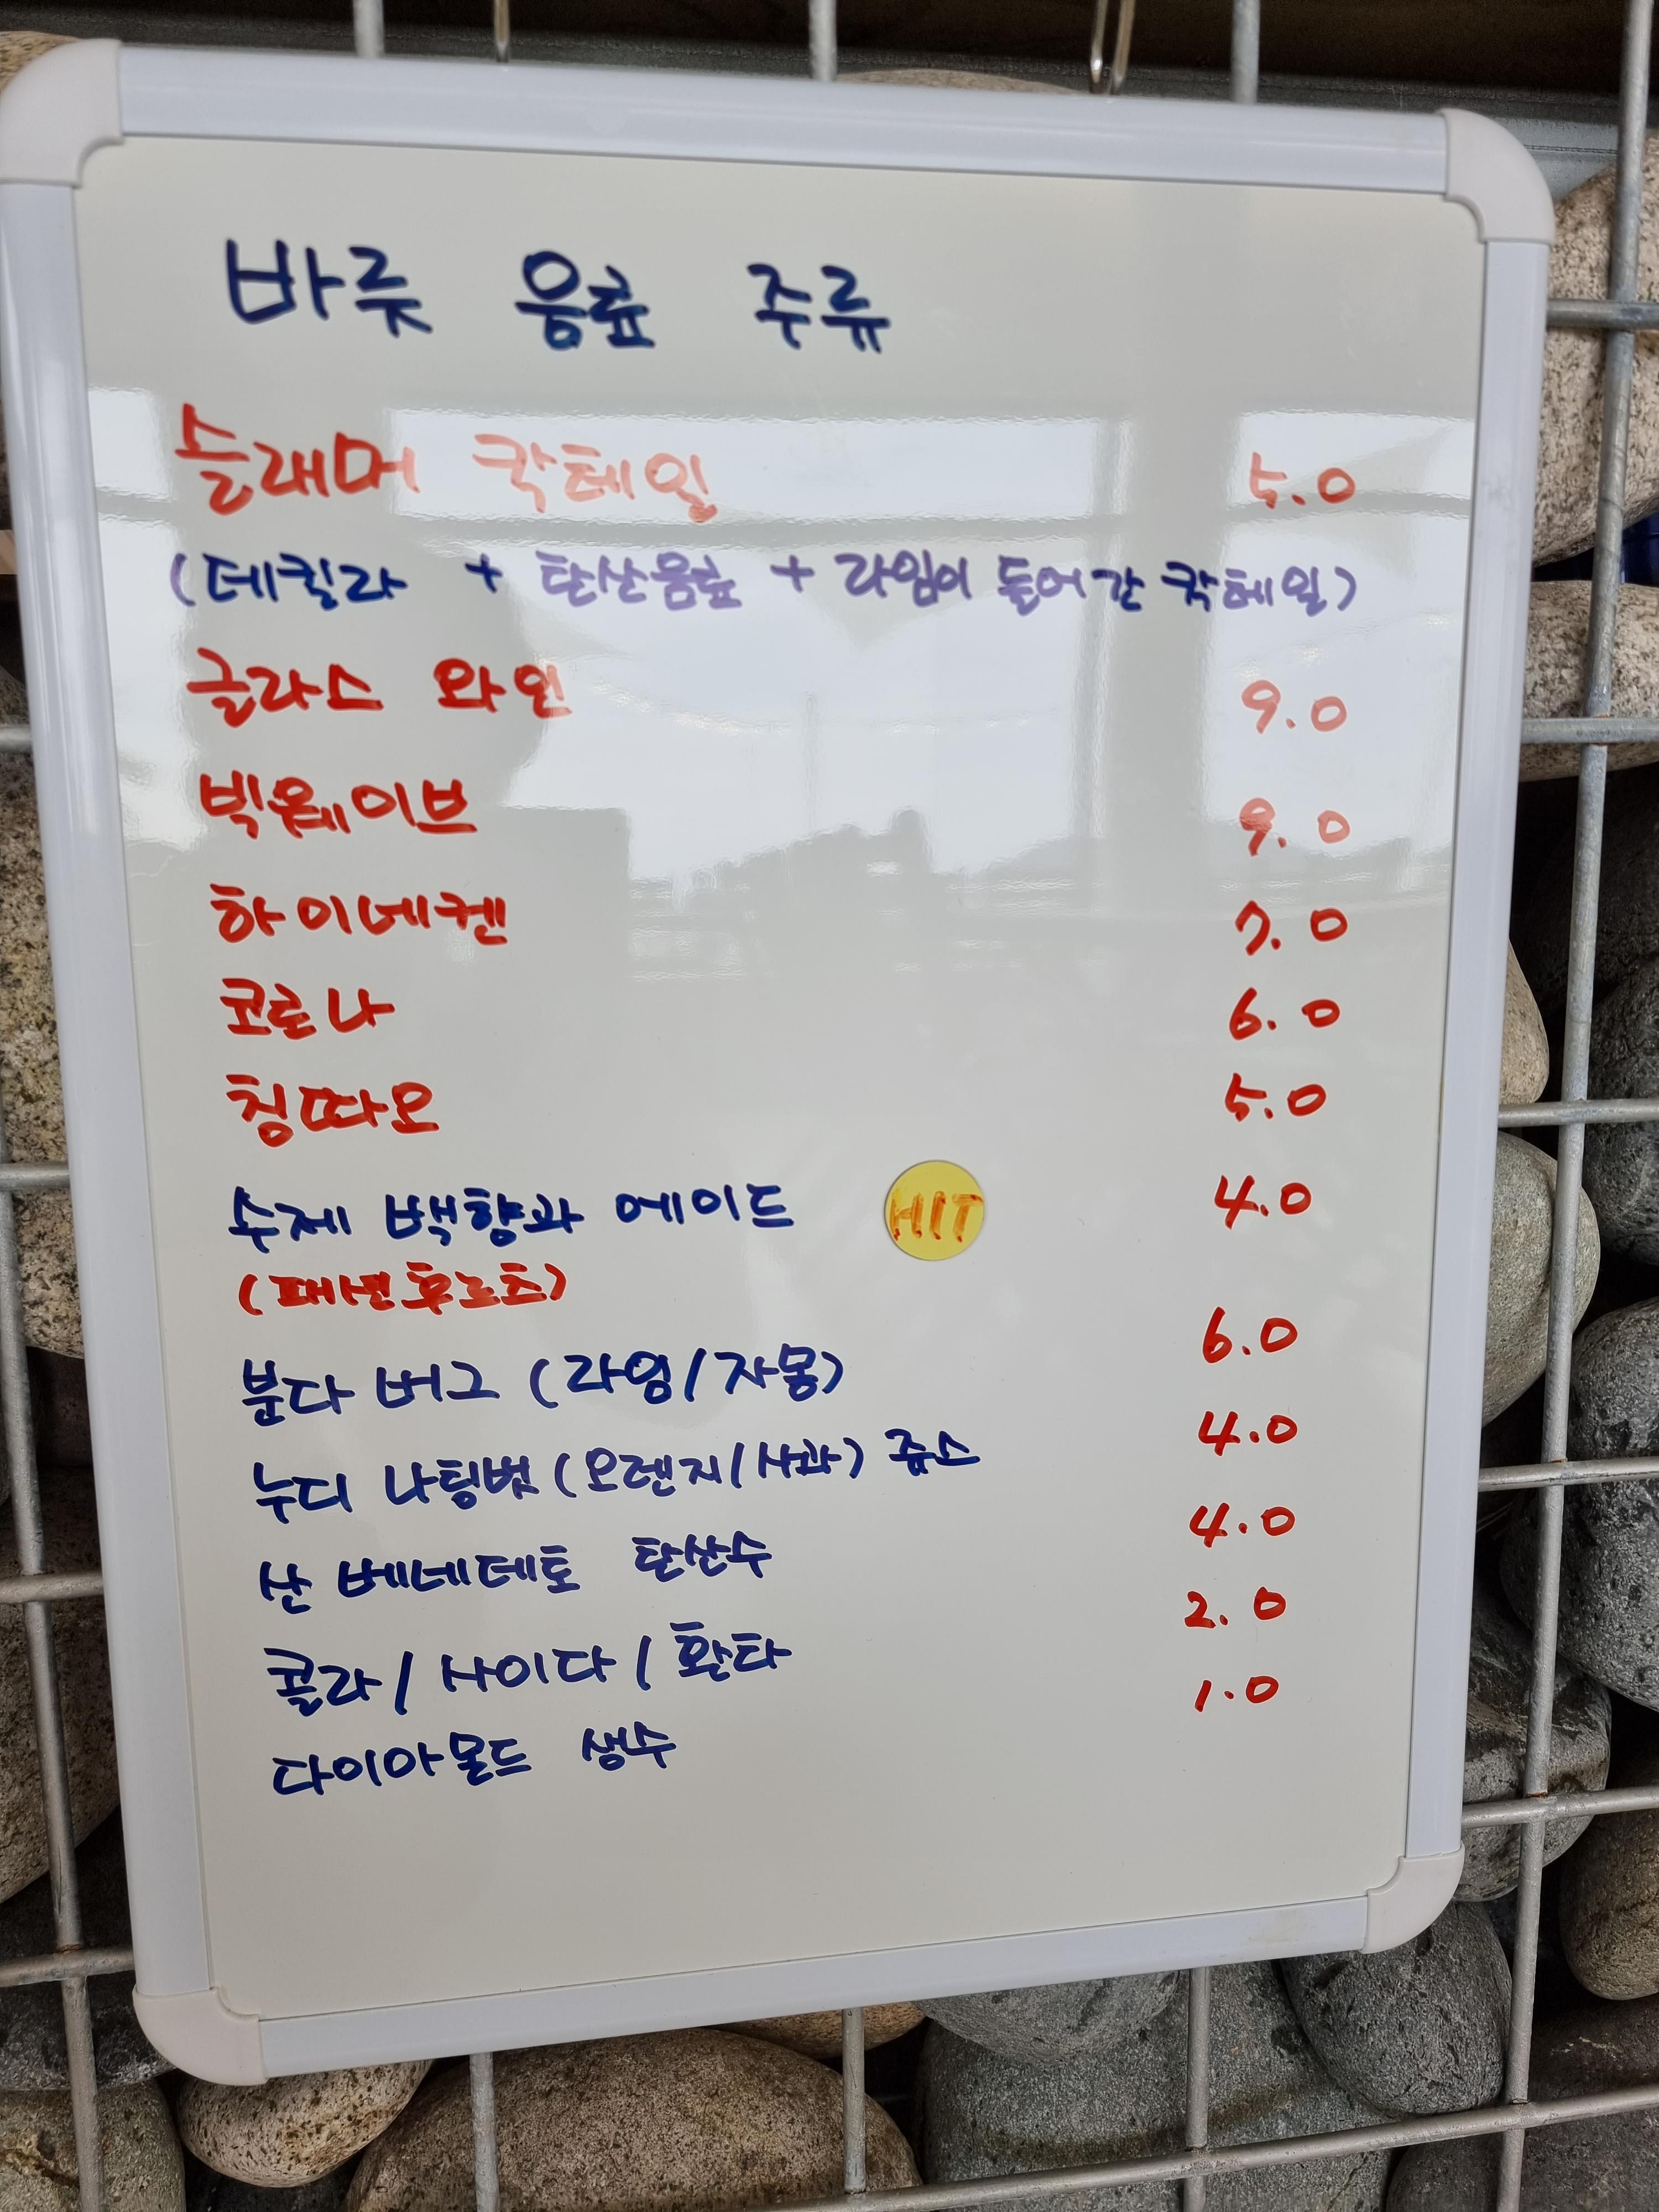 바릇 음료 주류
슬래머 칵테일 5.0
(데킬라 + 탄산음료 + 라임이 들어간 칵테일)
글라스 와인 9.0
빅웨이브 9.0
하이네켄 7.0
코로나 6.0
칭따오 5.0
수제 백향과 에이드 HIT 4.0
(패션후르츠)
분다 버그 (라임/자몽) 6.0
누디 나팅벗 (오렌지/사과) 쥬스 4.0
산 베네데토 탄산수 4.0
콜라/사이다/환타 2.0
다이아몬드 생수 1.0